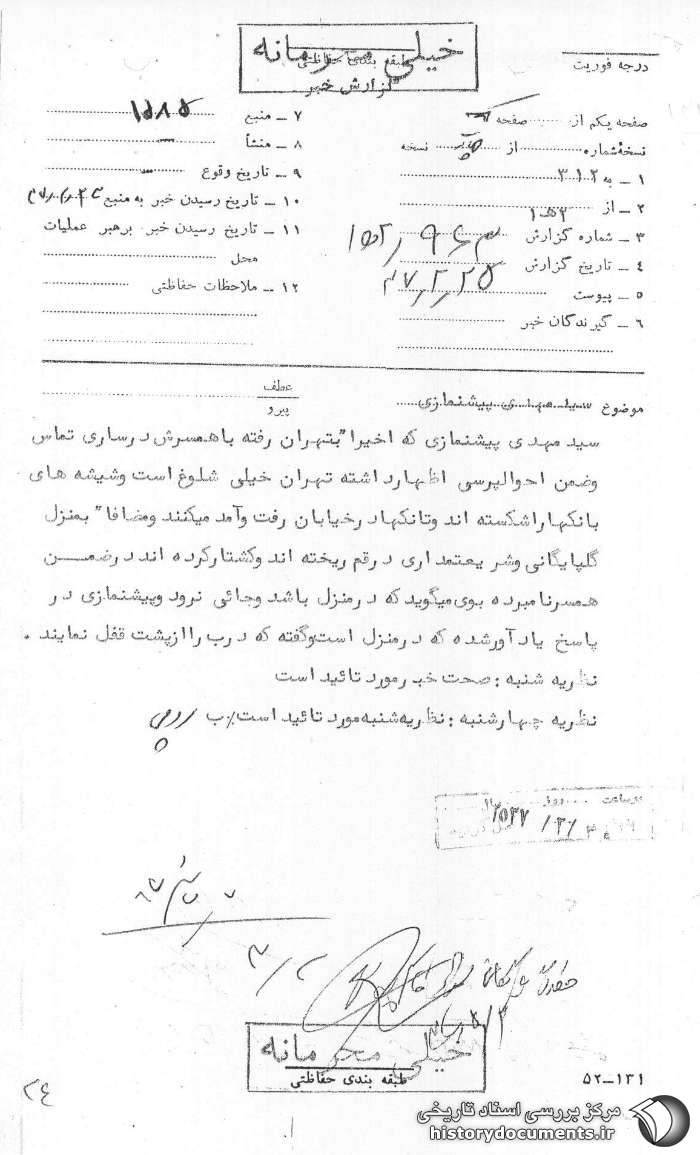 خیلی محرمانه
طبقه بندی حفاظتی
گزارش خبر
درجه فوریت
صفحه یکم از صفحه
نسخهٔ شماره از نسخه
۱ ــ به ۳۱۲
۲ ــ از
۳ ــ شماره گزارش
۴ ــ تاریخ گزارش ۳۷٫۲٫۲۵
۵ ــ پیوست
۶ ــ گیرندگان خبر
۷ ــ منبع
۸ ــ منشأ
۹ ــ تاریخ وقوع
۱۰ ــ تاریخ رسیدن خبر به منبع
۱۱ ــ تاریخ رسیدن خبر برهبر عملیات
محل
۱۲ ــ ملاحظات حفاظتی
عطف
پیرو
موضوع سید مهدی پیشنمازی
سید مهدی پیشنمازی که اخیرا" بتهران رفته با همسرش در ساری تماس
وضمن احوالپرسی اظهارداشته تهران خیلی شلوغ است وشیشه های
بانکهاراشکسته اند وتانکهادرخیابان رفت وآمد میکنند ومضافا" بمنزل
گلپایگانی وشریعتمداری درقم ریخته اند وکشتارکرده اند درضمن
همسرنامبرده بوی میگوید که درمنزل باشد وجائی نرود وپیشنمازی در
پاسخ یادآورشده که درمنزل است وگفته که درب را ازپشت قفل نمایند .
نظریه شنبه : صحت خبرمورد تائید است
نظریه چهارشنبه : نظریه شنبه مورد تائید است٪ ب
خیلی محرمانه
طبقه بندی حفاظتی
۵۲ــ۱۳۱
۲۴
مرکز بررسی اسناد تاریخی
historydocuments.ir